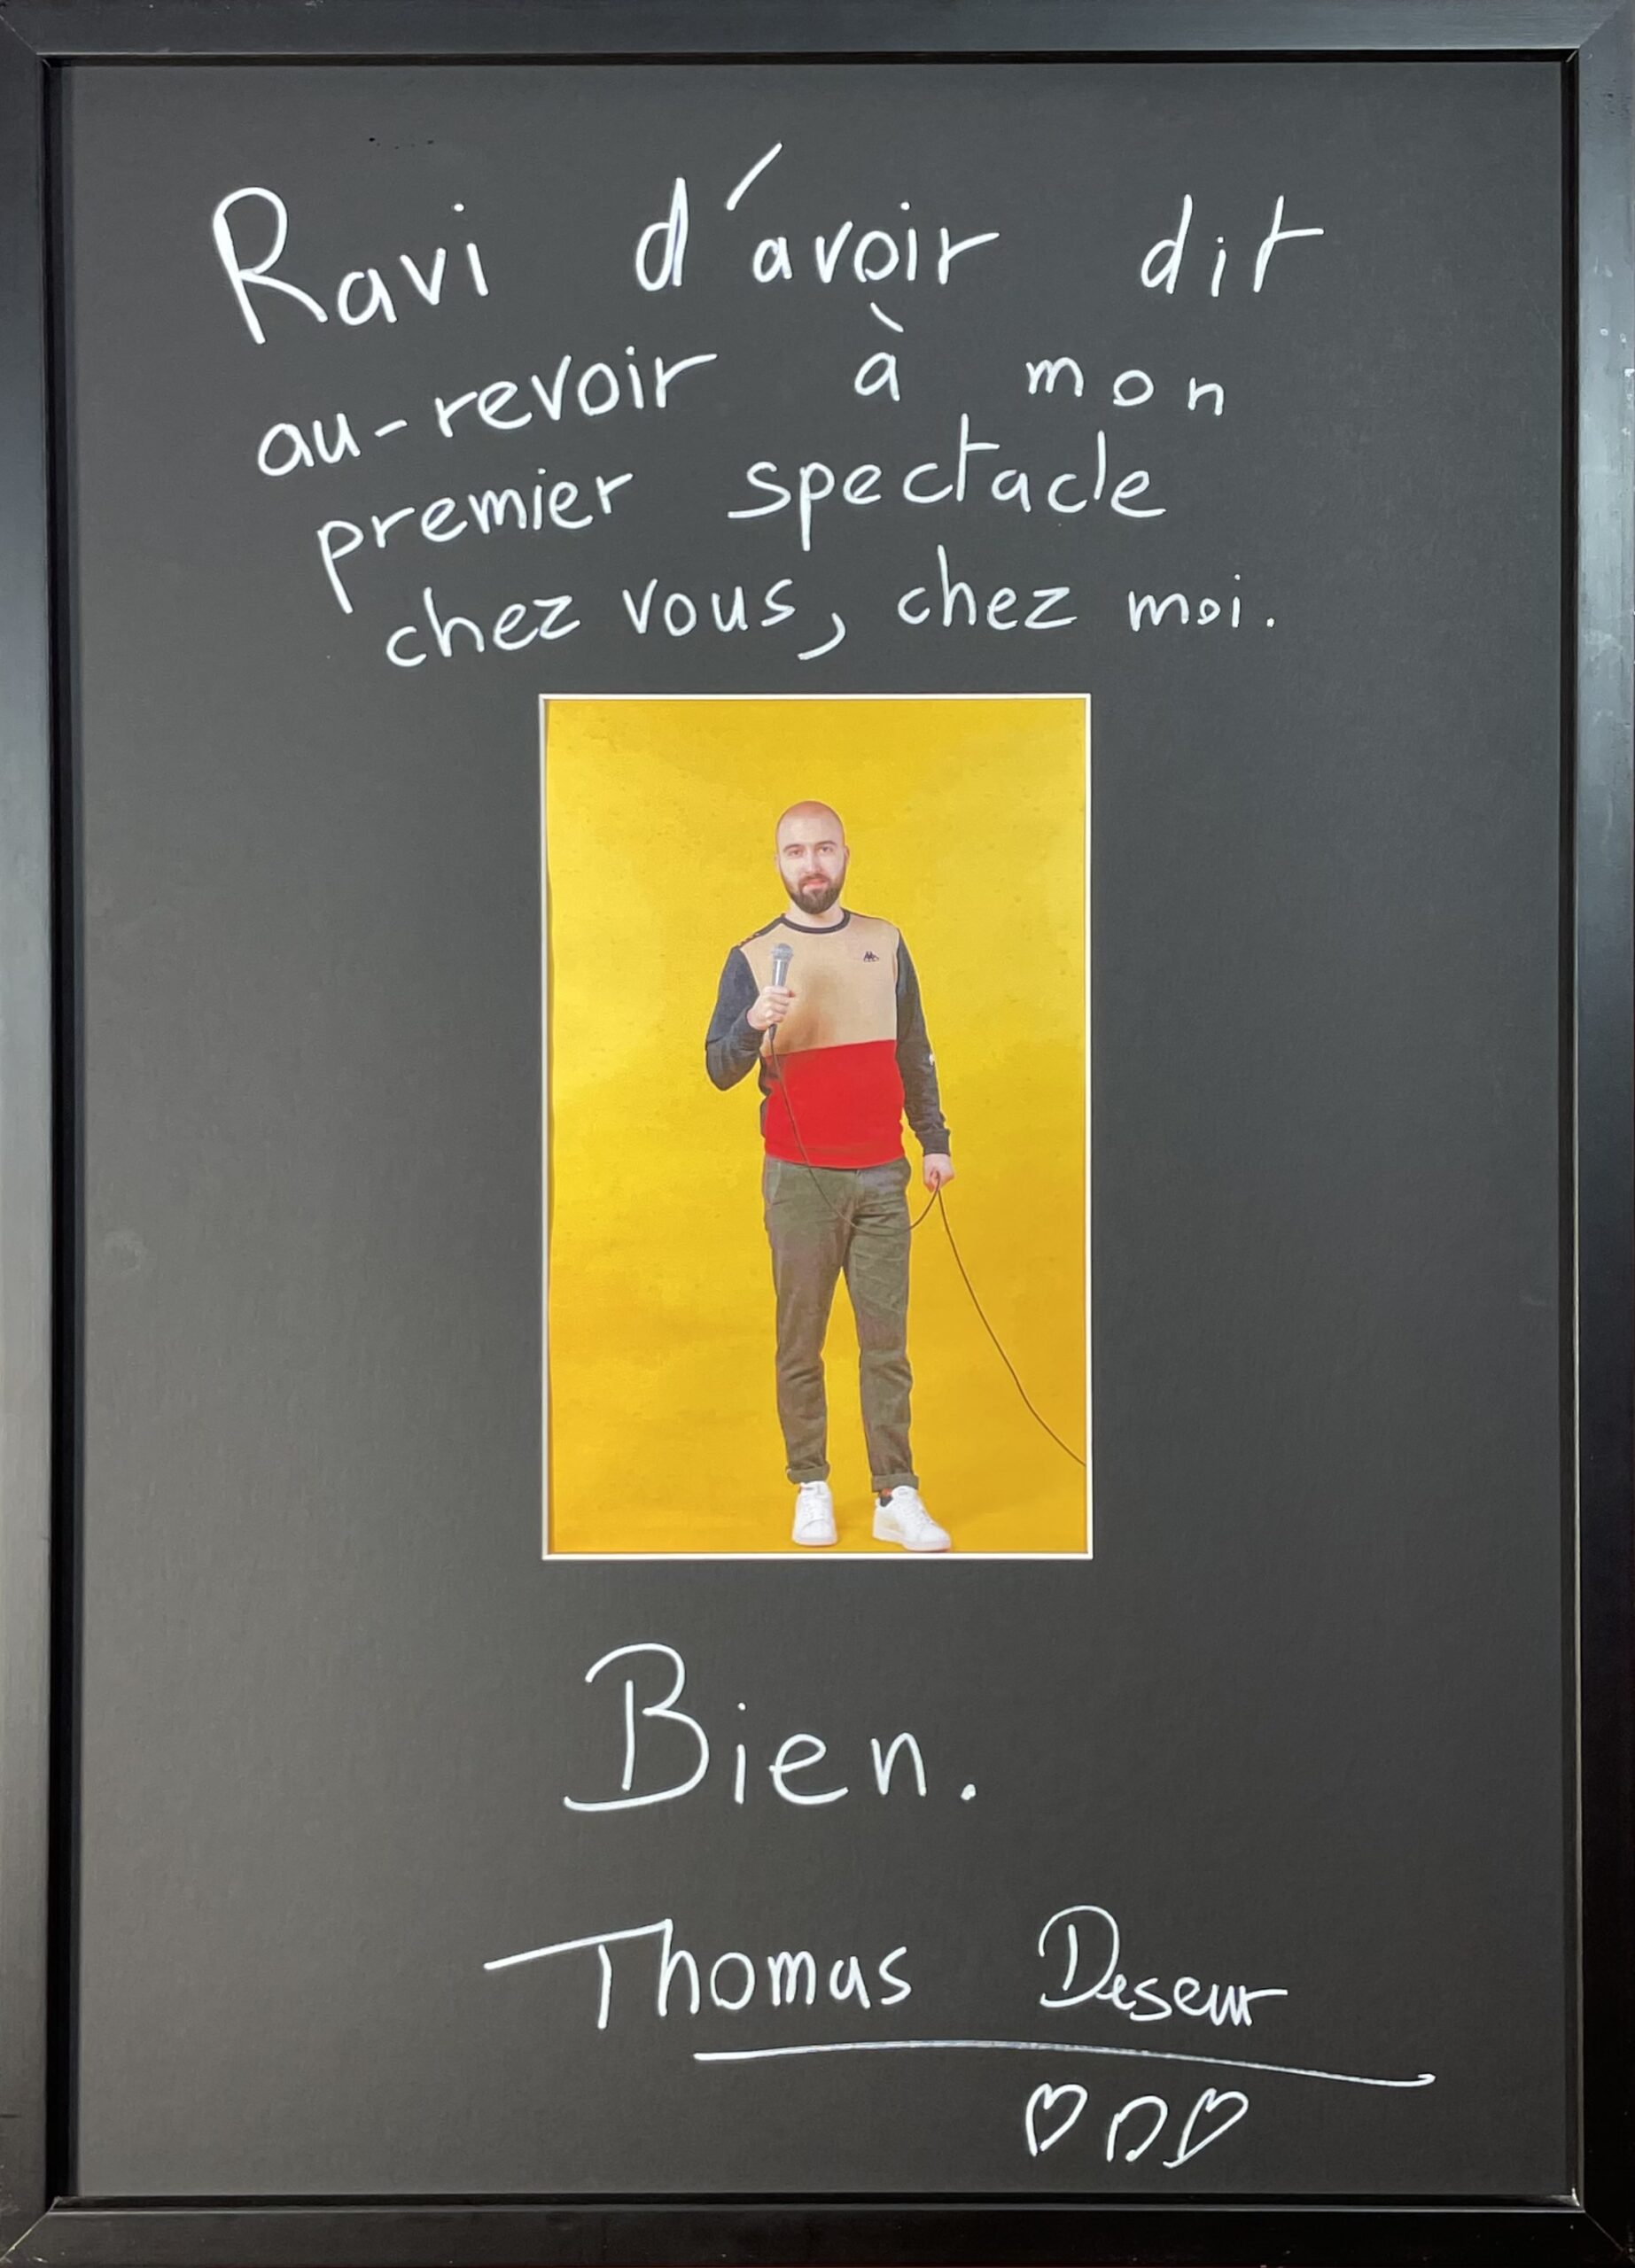 Ravi d'avoir dit
au-revoir à mon
premier spectacle
chez vous, chez moi.
Bien.
Thomas Deseur